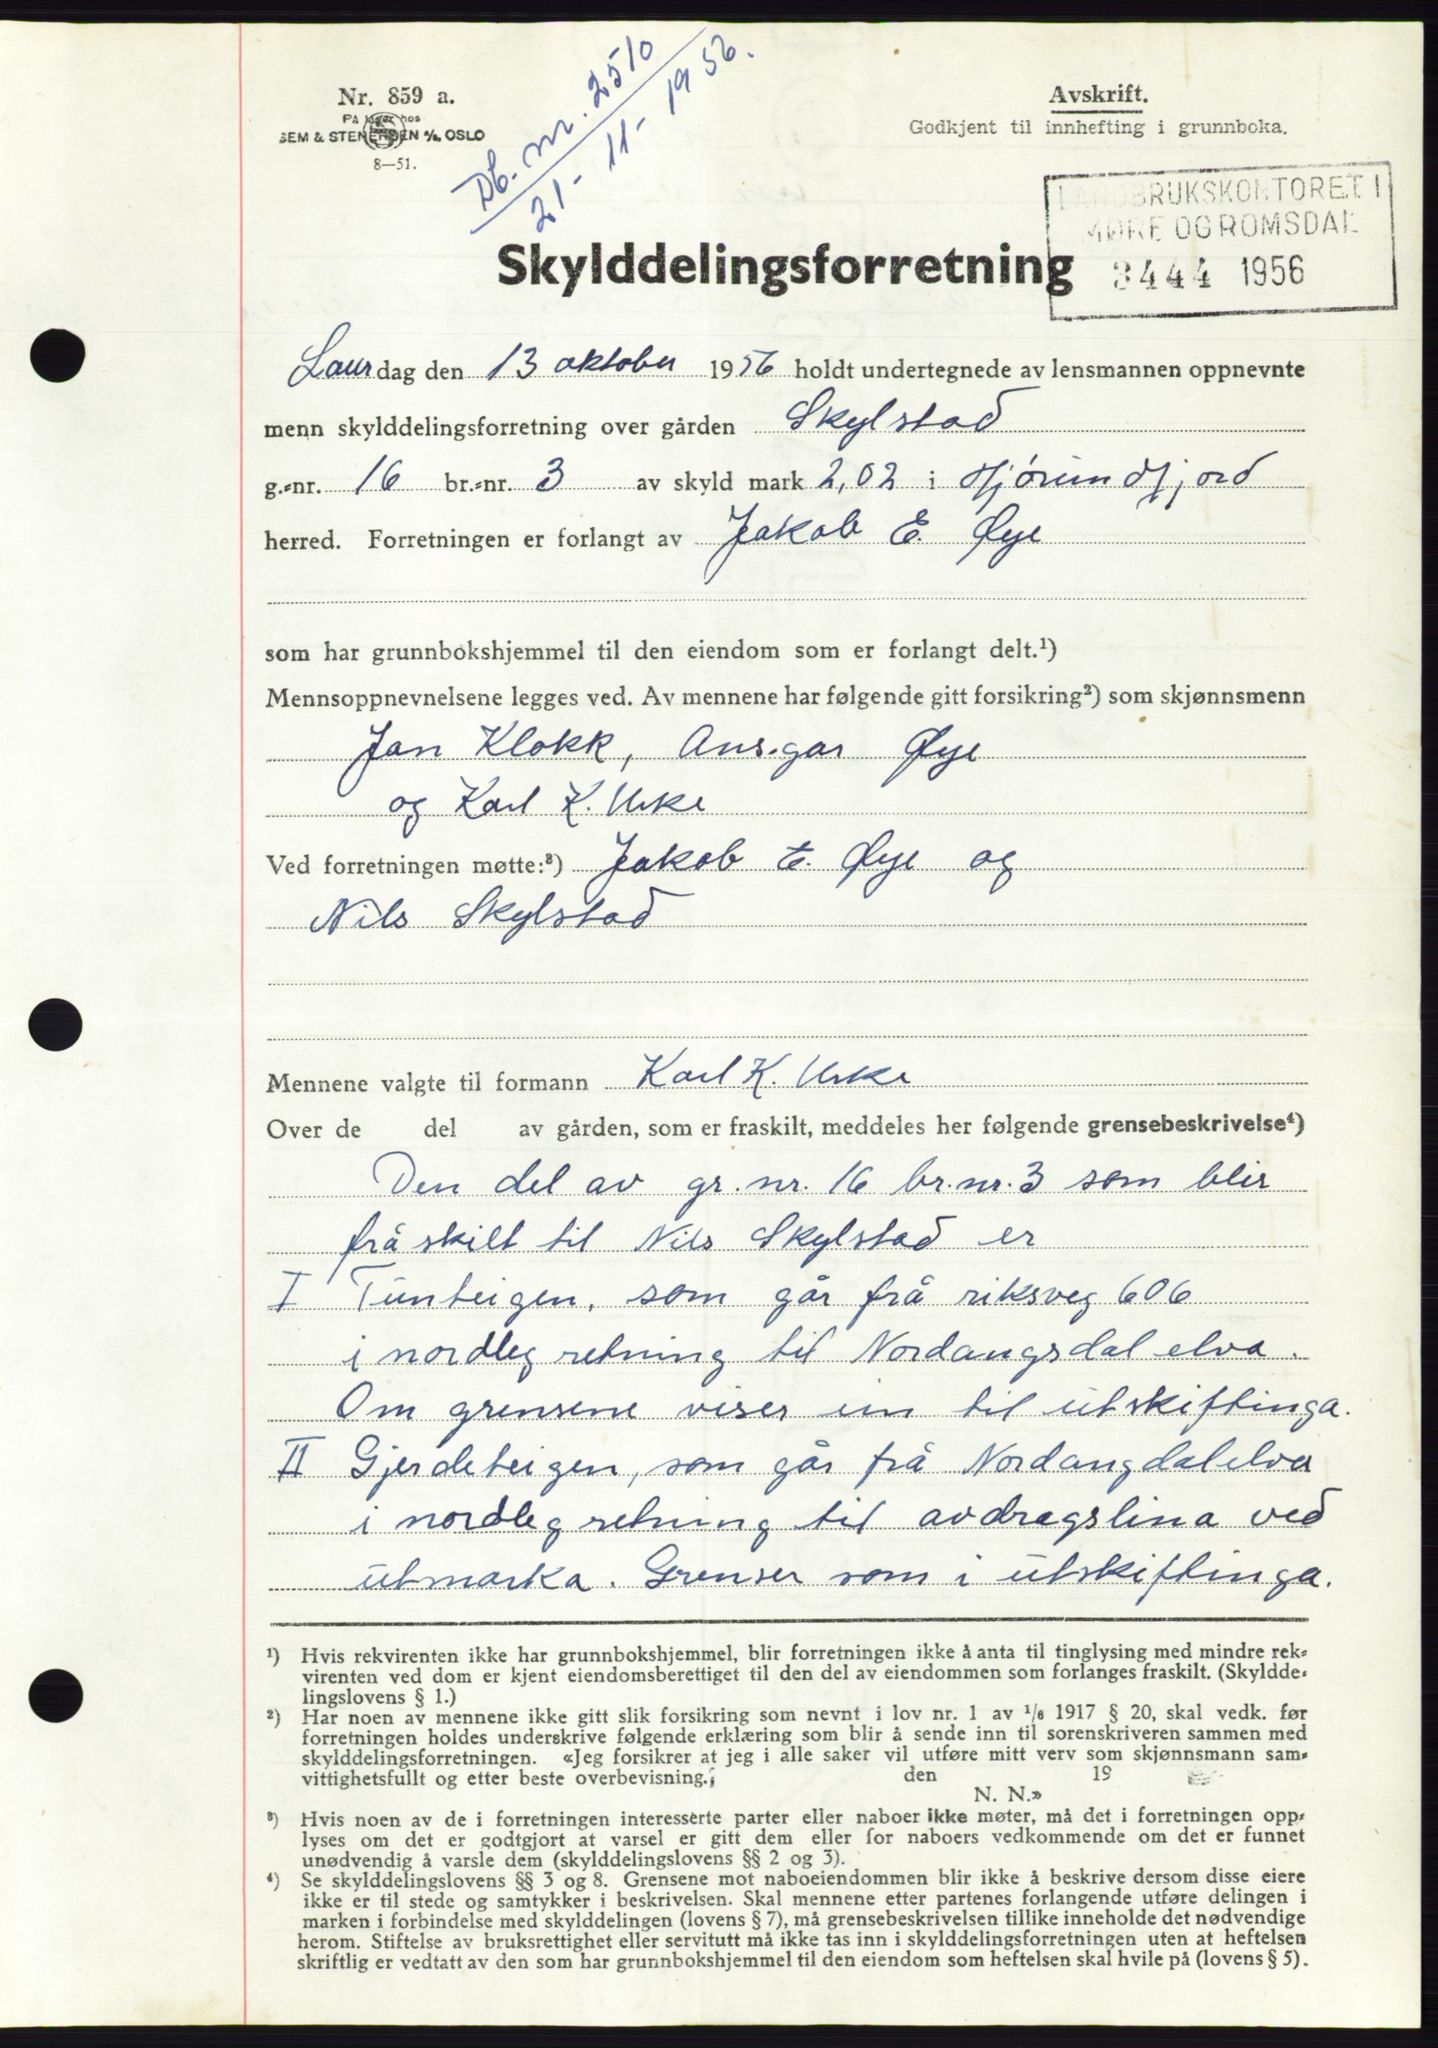 Nr. 859 a.
På lager hos
SEM & STENERSEN A/S OSLO
8—51.
Db. nr. 2510
21 - 11 - 1956.
Avskrift.
Godkjent til innhefting i grunnboka.
LANDBRUKSKONTORET I
MØRE OG ROMSDAL
3444 1956
Skylddelingsforretning
Laurdag den 13 oktober 1956 holdt undertegnede av lensmannen oppnevnte
menn skylddelingsforretning over gården Skylstad
g.-nr. 16 br.-nr. 3 av skyld mark 2,02 i Hjørundfjord
herred. Forretningen er forlangt av Jakob E. Øye
som har grunnbokshjemmel til den eiendom som er forlangt delt.¹)
Mennsoppnevnelsene legges ved. Av mennene har følgende gitt forsikring²) som skjønnsmenn
Jan Klokk, Ansgar Øye
og Karl K. Urke
Ved forretningen møtte:³) Jakob E. Øye og
Nils Skylstad
Mennene valgte til formann Karl K. Urke
Over de del av gården, som er fraskilt, meddeles her følgende grensebeskrivelse⁴)
Den del av gr. nr. 16 br. nr. 3 som blir
fråskilt til Nils Skylstad er
I Tunteigen, som går frå riksveg 606
i nordleg retning til Nordangsdal elva.
Om grensene viser ein til utskiftinga.
II Gjerdeteigen, som går frå Nordangdalelva
i nordleg retning til avdragslina ved
utmarka. Grenser som i utskiftinga.
¹) Hvis rekvirenten ikke har grunnbokshjemmel, blir forretningen ikke å anta til tinglysing med mindre rek-
virenten ved dom er kjent eiendomsberettiget til den del av eiendommen som forlanges fraskilt. (Skyldde-
lingslovens § 1.)
²) Har noen av mennene ikke gitt slik forsikring som nevnt i lov nr. 1 av 1/6 1917 § 20, skal vedk. før
forretningen holdes underskrive følgende erklæring som blir å sende inn til sorenskriveren sammen med
skylddelingsforretningen. «Jeg forsikrer at jeg i alle saker vil utføre mitt verv som skjønnsmann sam-
vittighetsfullt og etter beste overbevisning.; den 19
N. N.»
³) Hvis noen av de i forretningen interesserte parter eller naboer ikke møter, må det i forretningen opp-
lyses om det er godtgjort at varsel er gitt dem eller for naboers vedkommende om det er funnet
unødvendig å varsle dem (skylddelingslovens §§ 2 og 3).
⁴) Se skylddelingslovens §§ 3 og 8. Grensene mot naboeiendommen blir ikke å beskrive dersom disse eiere
ikke er til stede og samtykker i beskrivelsen. Skal mennene etter partenes forlangende utføre delingen i
marken i forbindelse med skylddelingen (lovens § 7), må grensebeskrivelsen tillike inneholde det nødvendige
herom. Stiftelse av bruksrettighet eller servitutt må ikke tas inn i skylddelingsforretningen uten at heftelsen
skriftlig er vedtatt av den som har grunnbokshjemmel til den eiendom som heftelsen skal hvile på (lovens § 5).